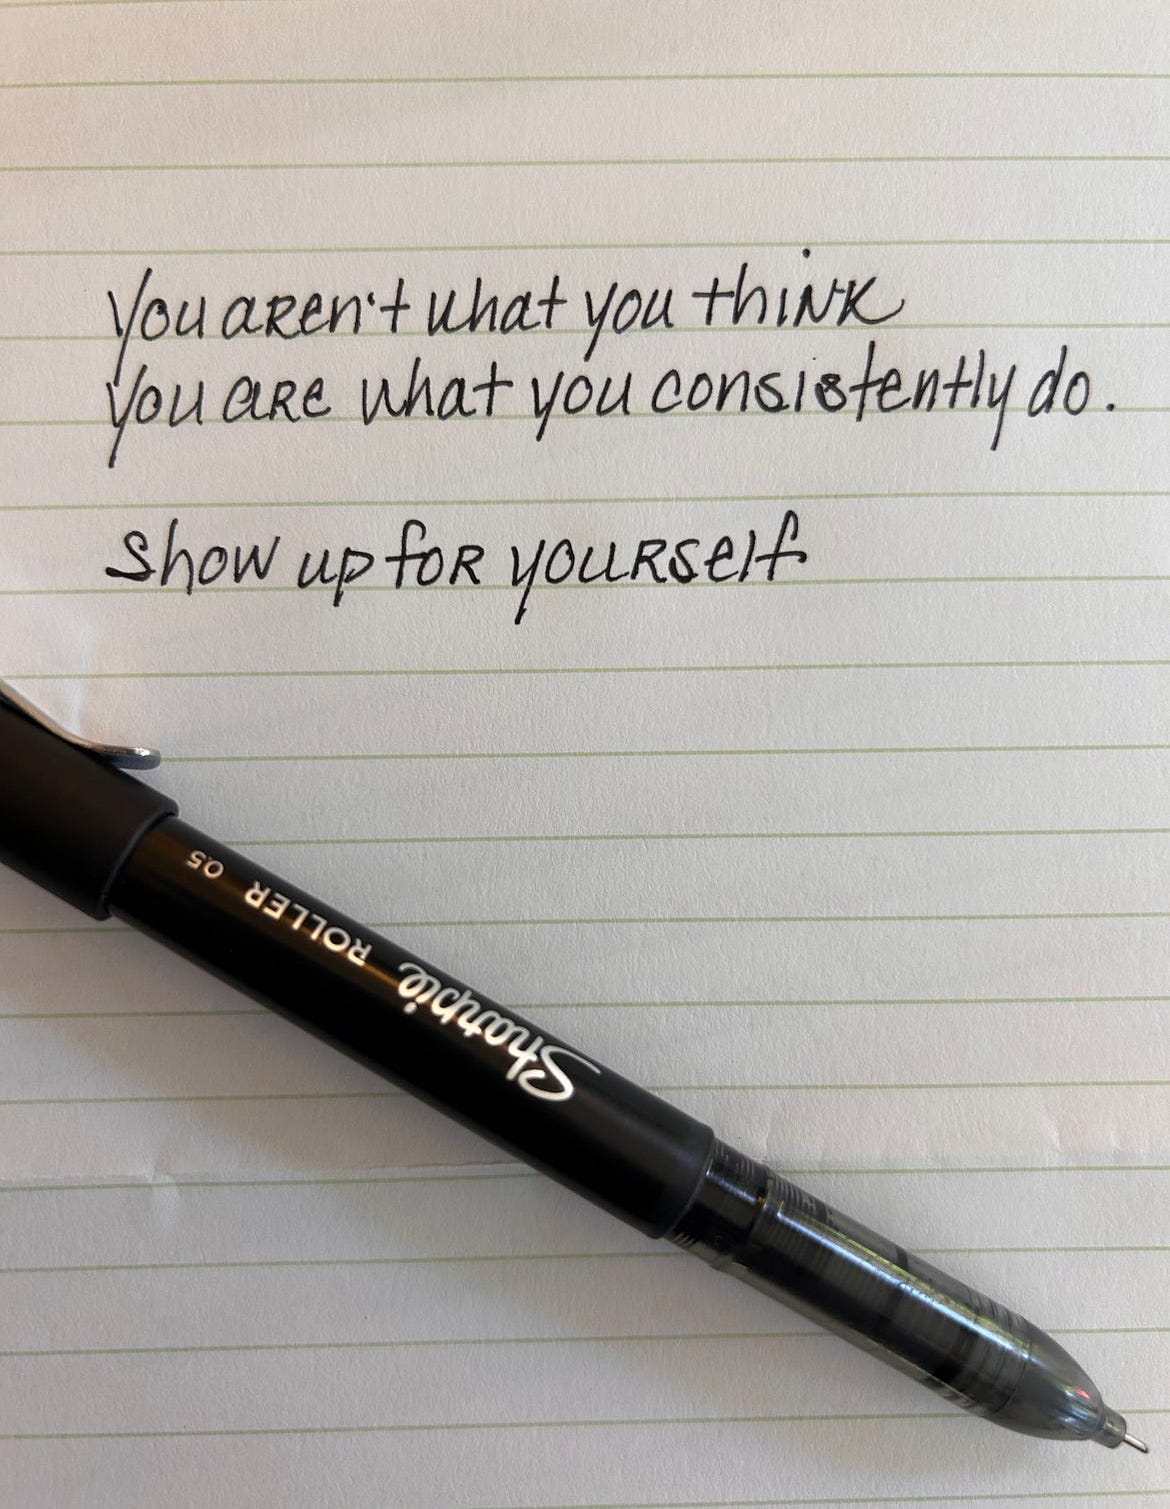 You aren't what you think
You are what you consistently do.
Show up for yourself
Sharpie ROLLER 0.5